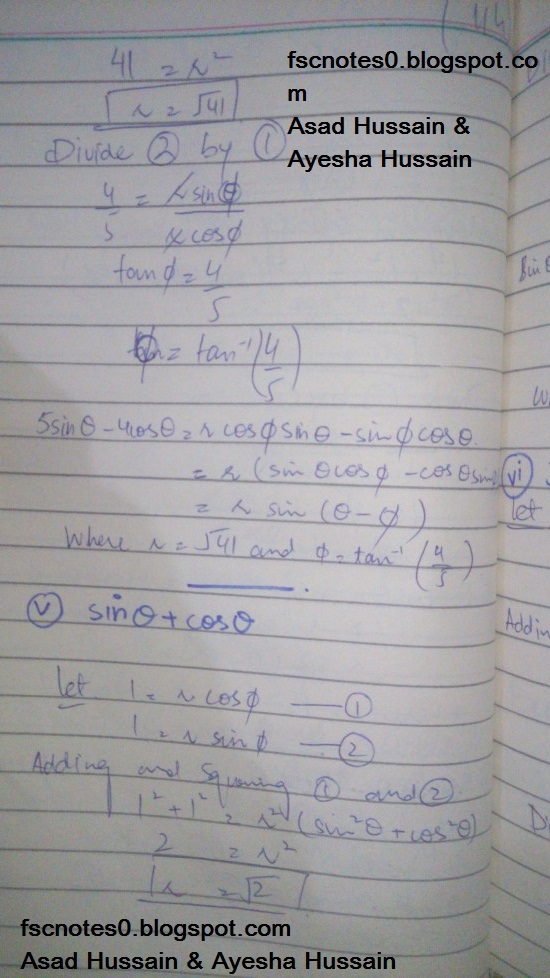 114
41 = r²
fscnotes0.blogspot.co
m
r = √41
Asad Hussain &
Ayesha Hussain
Divide ② by ①
4/5 = r sinϕ / r cosϕ
tanϕ = 4/5
ϕ = tan⁻¹(4/5)
5sinθ - 4cosθ = r cosϕ sinθ - sinϕ cosθ.
= r (sin θcosϕ - cosθsin
= r sin (θ - ϕ)
Where r = √41 and ϕ = tan⁻¹(4/5)
ⓥ sinθ + cosθ
let 1 = r cosϕ — ①
1 = r sinϕ — ②
Adding and Squaring ① and ②.
1² + 1² = r² (sin²θ + cos²θ)
2 = r²
r = √2
Sin θ
vi
let
Addin
fscnotes0.blogspot.com
Asad Hussain & Ayesha Hussain